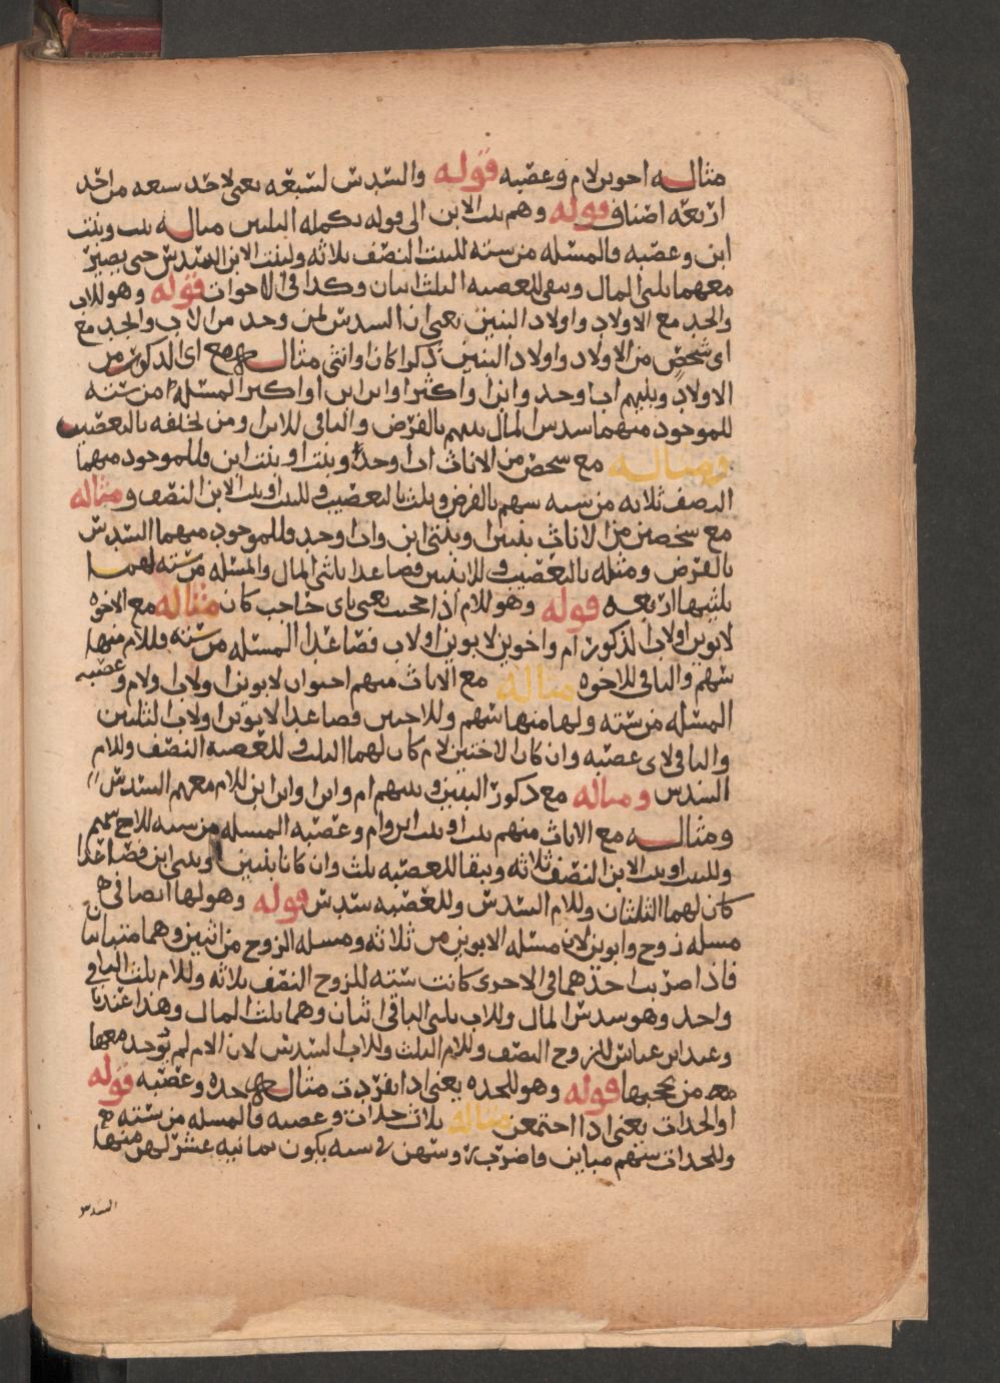 مثاله اخوين لام وعصبه قوله والسدس لسبعه يعني لاحد سبعه من احد
اربعه اصناف قوله وهم بنت الابن الى قوله تكمله الثلثين مثاله بنت وبنت
ابن وعصبه فالمسله من سته للبنت النصف ثلاثه ولبنت الابن السدس حتى يصير
معهما ثلثي المال ويبقى للعصبه الثلث اثنان وكذا في الاخوات قوله وهو للاب
والجد مع الاولاد واولاد البنين يعني ان السدس لمن وجد من الاب والجد مع
اي شخص من الاولاد واولاد البنين ذكرا كان او انثى مثاله مع اي الذكور من
الاولاد وبنيهم اب او جد وابن او اكثر او ابن ابن او اكثر المسله من سته
للموجود منهما سدس المال بينهم بالفرض والباقي للابن او من يخلفه بالتعصيب
ومثاله مع شخص من الاناث اب او جد وبنت او بنت ابن فللموجود منهما
النصف ثلاثه من سته سهم بالفرض وثلث بالتعصيب وللبنت او بنت الابن النصف ومثاله
مع شخصين من الاناث بنتين او بنتي ابن واب او جد فللموجود منهما السدس
بالفرض ومثله بالتعصيب وللابنتين فصاعدا ثلثي المال والمسله من سته لهما
ثلثيها اربعه قوله وهو للام اذا حجبت يعني باي حاجب كان مثاله مع الاخوه
لابوين او لاب الذكور ام واخوين لابوين او لاب فصاعدا المسله من سته فللام منها
سهم والباقي للاخوه مثاله مع الاناث منهم اختان لابوين او لاب او لام وعصبه
المسله من سته ولها منها سهم وللاختين فصاعدا لابوين او لاب الثلثين
والباقي لاي عصبه وان كان الاختين لام كان لهما الثلث وللعصبه النصف وللام
السدس ومثاله مع ذكور البنين وبنيهم ام وابن او ابن ابن للام معهم السدس
ومثاله مع الاناث منهم بنت او بنت ابن وام وعصبه المسله من سته للام سهم
وللبنت او بنت الابن النصف ثلاثه ويبقا للعصبه ثلث وان كانا بنتين او بنتي ابن فصاعدا
كان لهما الثلثان وللام السدس وللعصبه سدس قوله وهو لها ايضا في
مسله زوج وابوين لان مسله الابوين من ثلاثه ومسله الزوج من اثنين وهما متباينان
فاذا ضربت احدهما في الاخرى كانت سته للزوج النصف ثلاثه وللام ثلث الباقي
واحد وهو سدس المال وللاب ثلثي الباقي اثنان وهما ثلث المال وهذا عندنا
وعند ابن عباس للزوج النصف وللام الثلث وللاب السدس لان الام لم يوجد معها
من يحجبها قوله وهو للجده يعني اذا انفردت مثاله جده وعصبه قوله
او الجدات يعني اذا اجتمعن مثاله ثلاث جدات وعصبه فالمسله من سته
وللجدات سهم مباين فاضرب روسهن في سته يكون ثمانيه عشر لهن منها
السدس